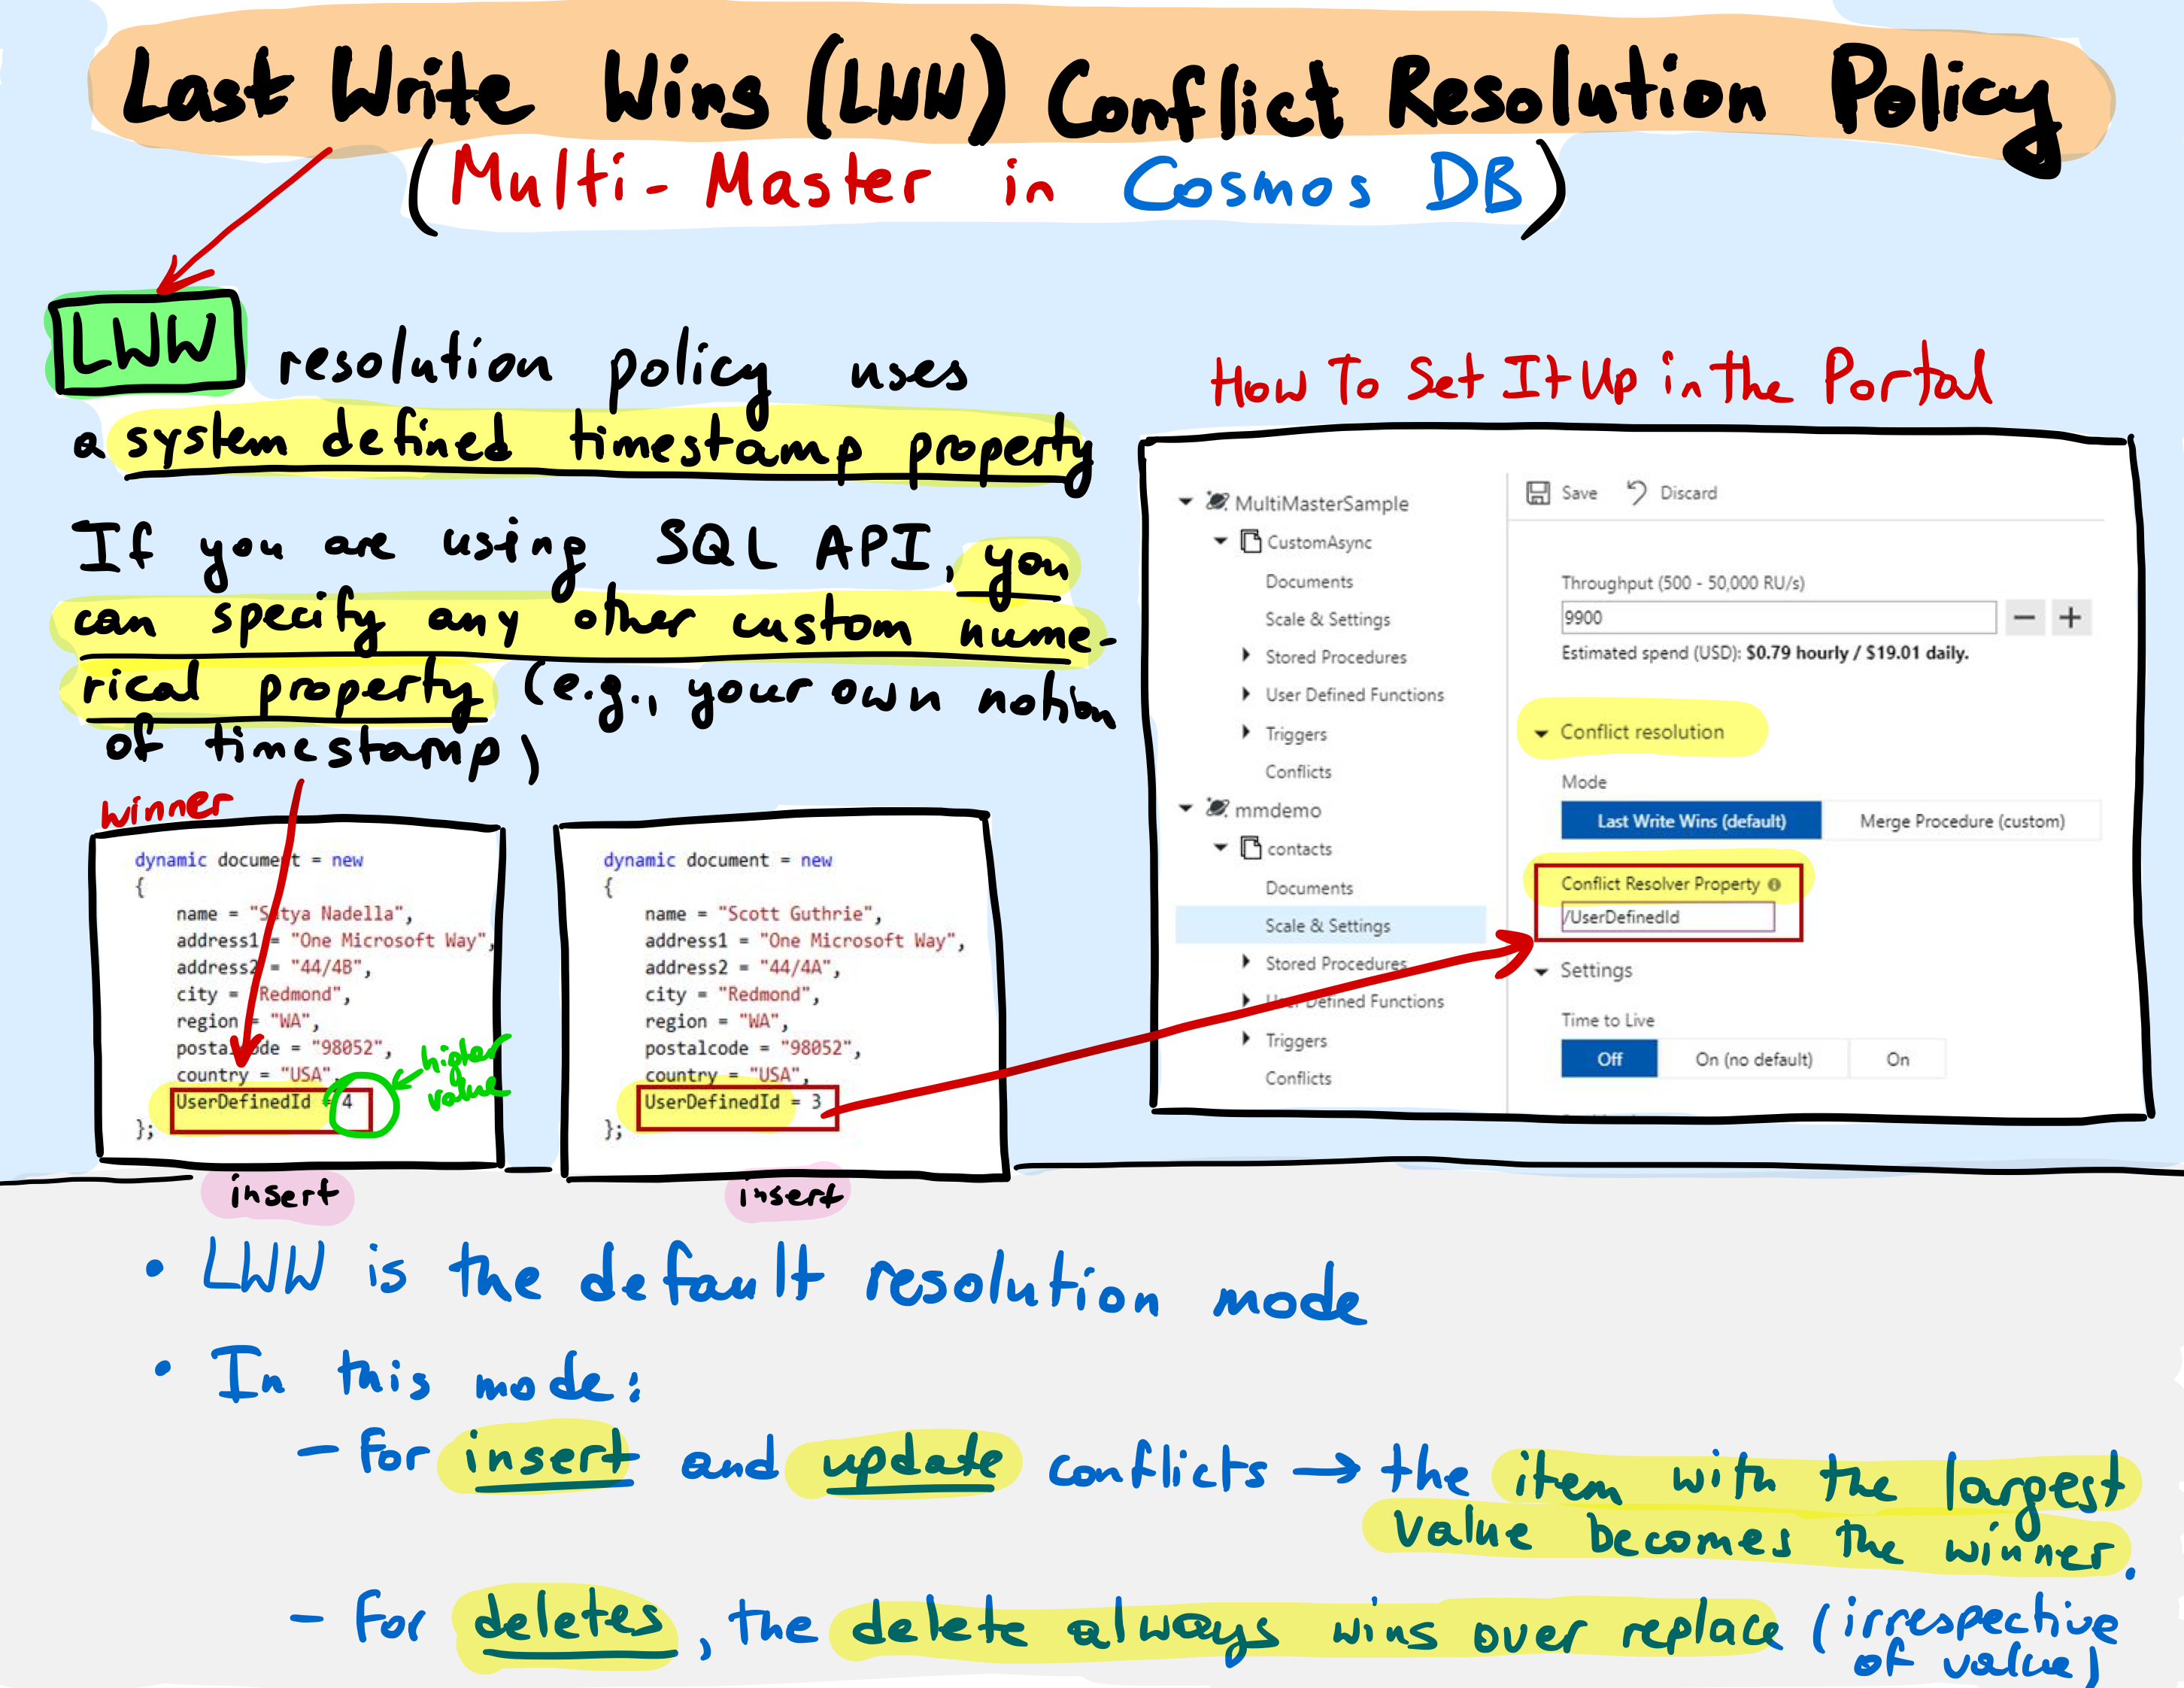 Last Write Wins (LWW) Conflict Resolution Policy
(Multi-Master in Cosmos DB)
LWW resolution policy uses
a system defined timestamp property
If you are using SQL API, you
can specify any other custom nume-
rical property (e.g., your own notion
of timestamp)
winner
dynamic document = new
{
name = "Satya Nadella",
address1 = "One Microsoft Way",
address2 = "44/4B",
city = "Redmond",
region = "WA",
postalcode = "98052",
country = "USA",
UserDefinedId = 4
};
higher
value
insert
dynamic document = new
{
name = "Scott Guthrie",
address1 = "One Microsoft Way",
address2 = "44/4A",
city = "Redmond",
region = "WA",
postalcode = "98052",
country = "USA",
UserDefinedId = 3
};
insert
How To Set It Up in the Portal
MultiMasterSample
CustomAsync
Documents
Scale & Settings
Stored Procedures
User Defined Functions
Triggers
Conflicts
mmdemo
contacts
Documents
Scale & Settings
Stored Procedures
User Defined Functions
Triggers
Conflicts
Save Discard
Throughput (500 - 50,000 RU/s)
9900
Estimated spend (USD): $0.79 hourly / $19.01 daily.
Conflict resolution
Mode
Last Write Wins (default) Merge Procedure (custom)
Conflict Resolver Property
/UserDefinedId
Settings
Time to Live
Off On (no default) On
• LWW is the default resolution mode
• In this mode:
– For insert and update conflicts → the item with the largest
value becomes the winner.
– For deletes, the delete always wins over replace (irrespective
of value)